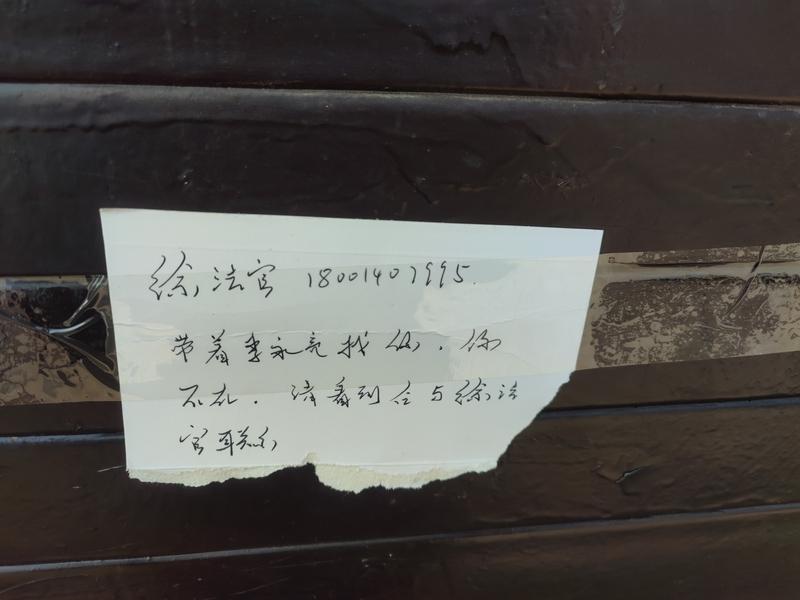 徐法官 18001407995.
带着李永亮找你.你
不在.请看到后与徐法
官联系